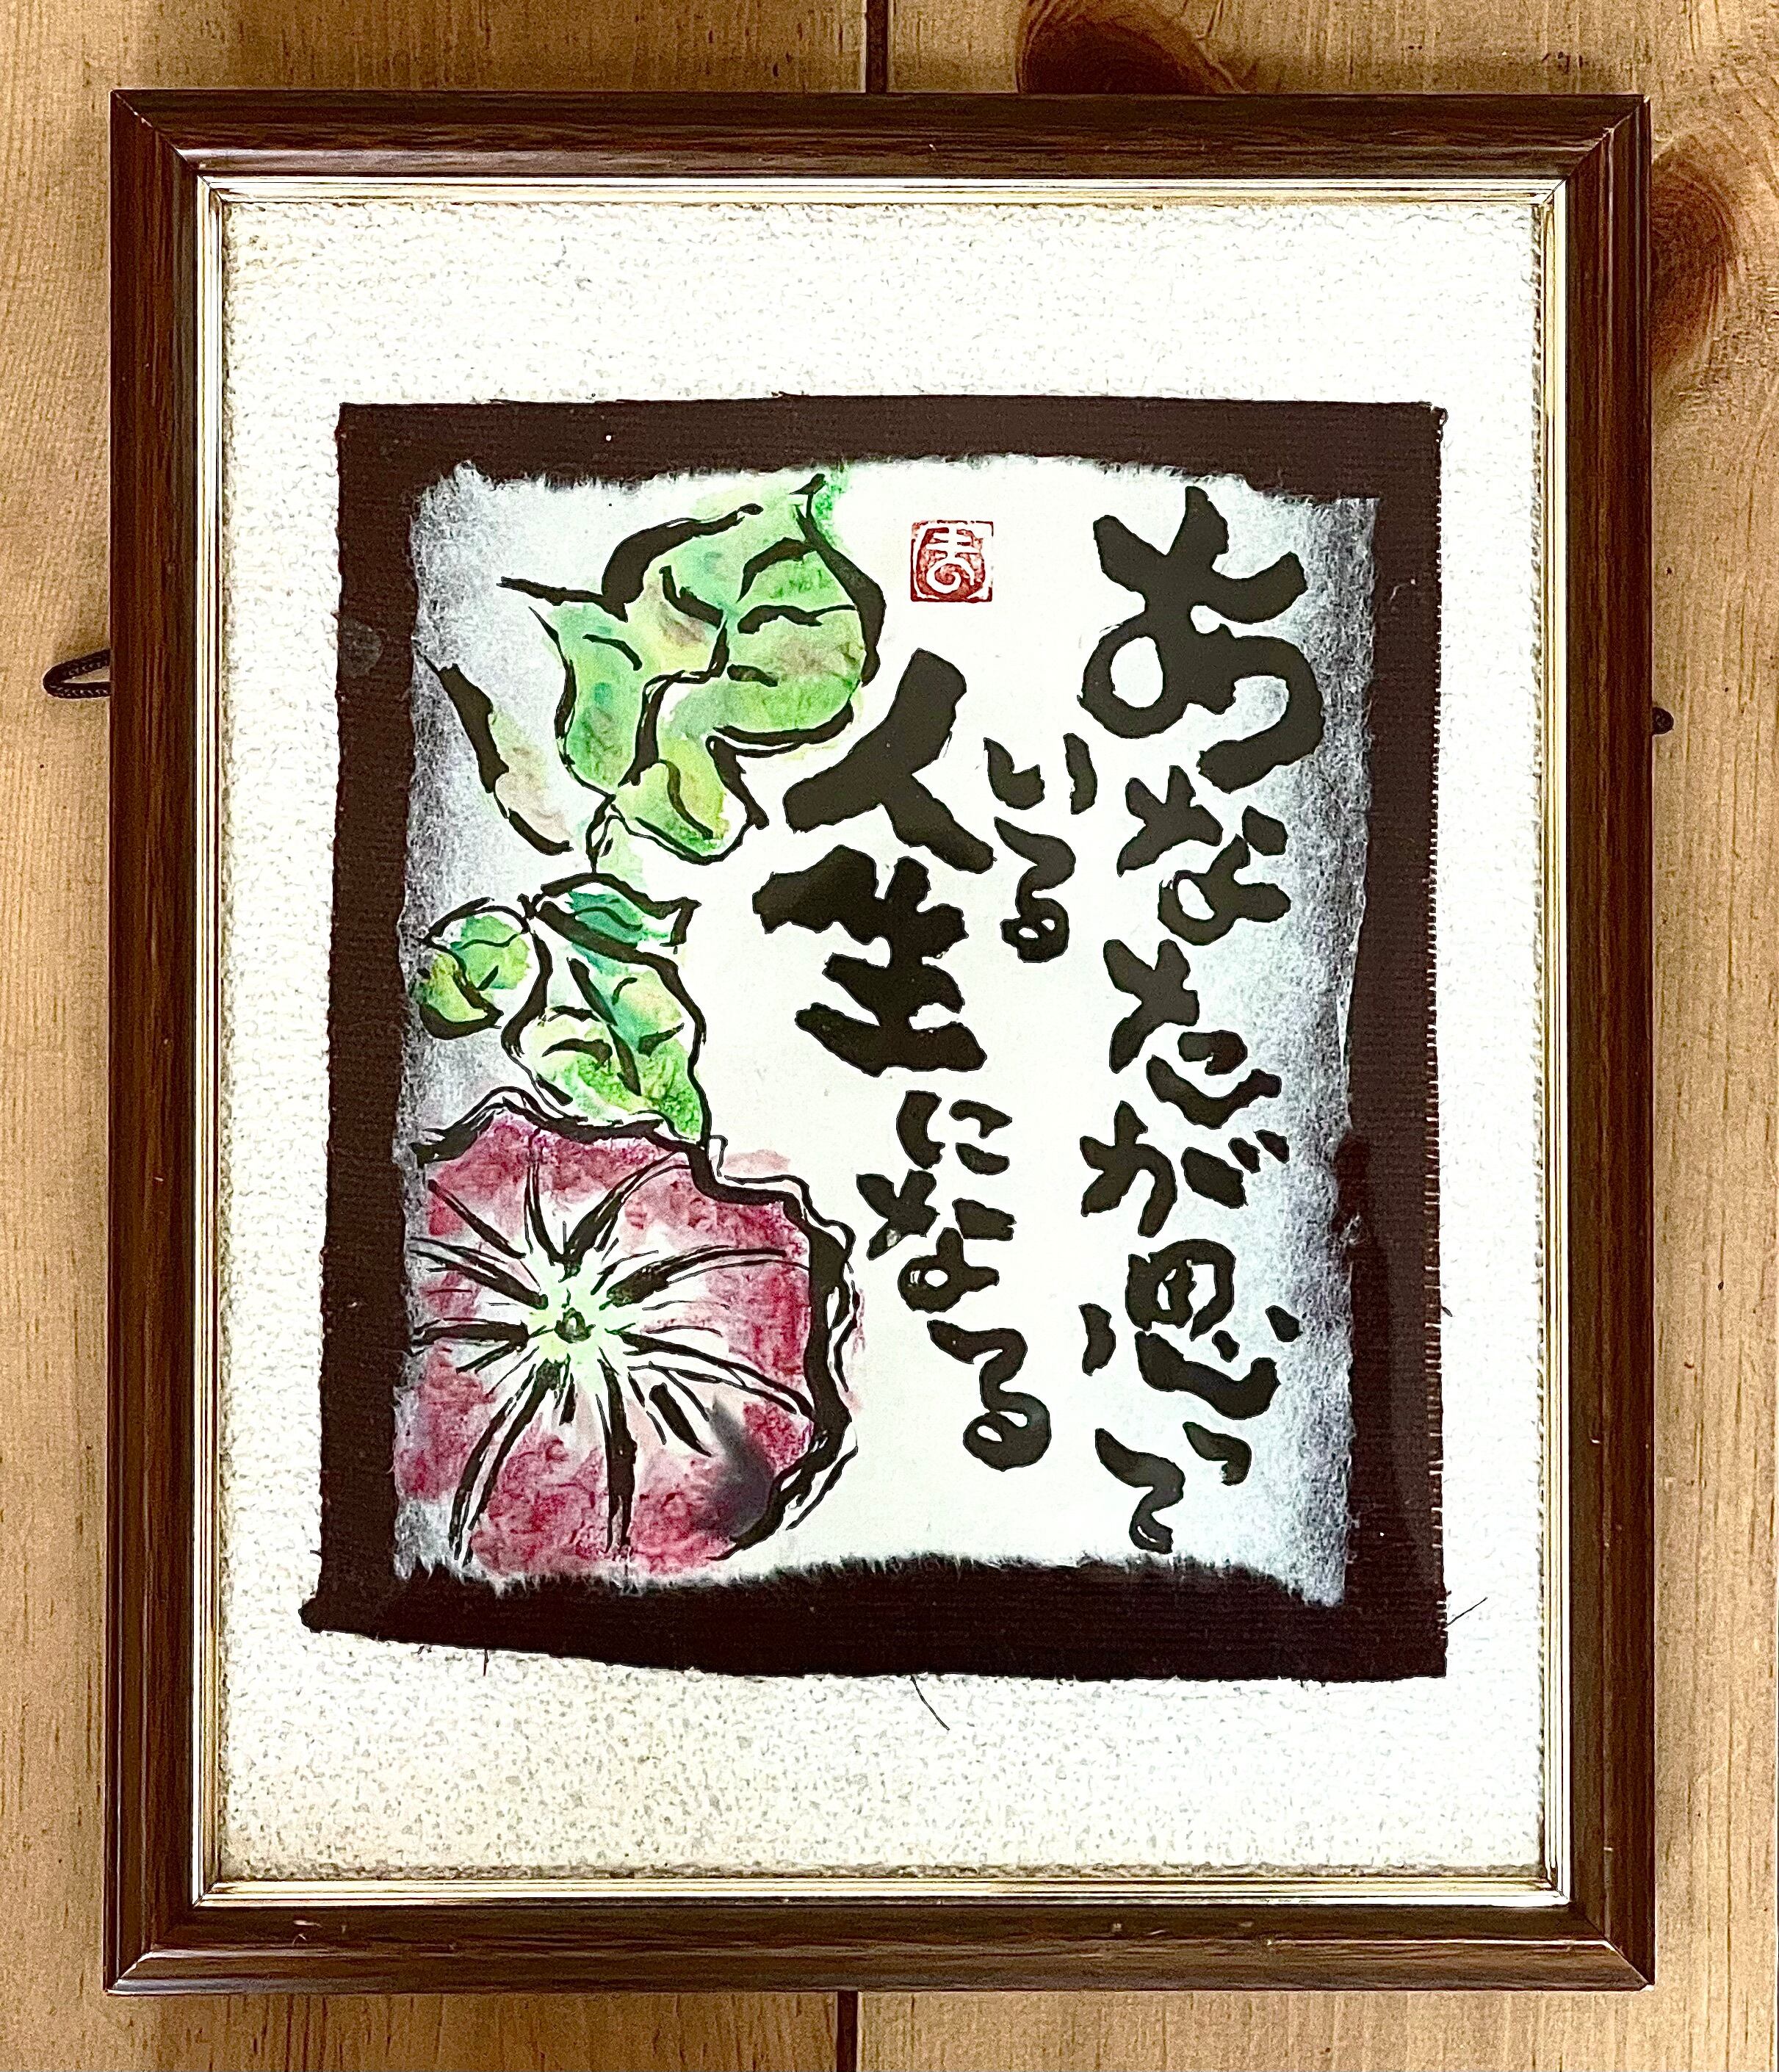 あなたが思って
いる
人生になる
ま